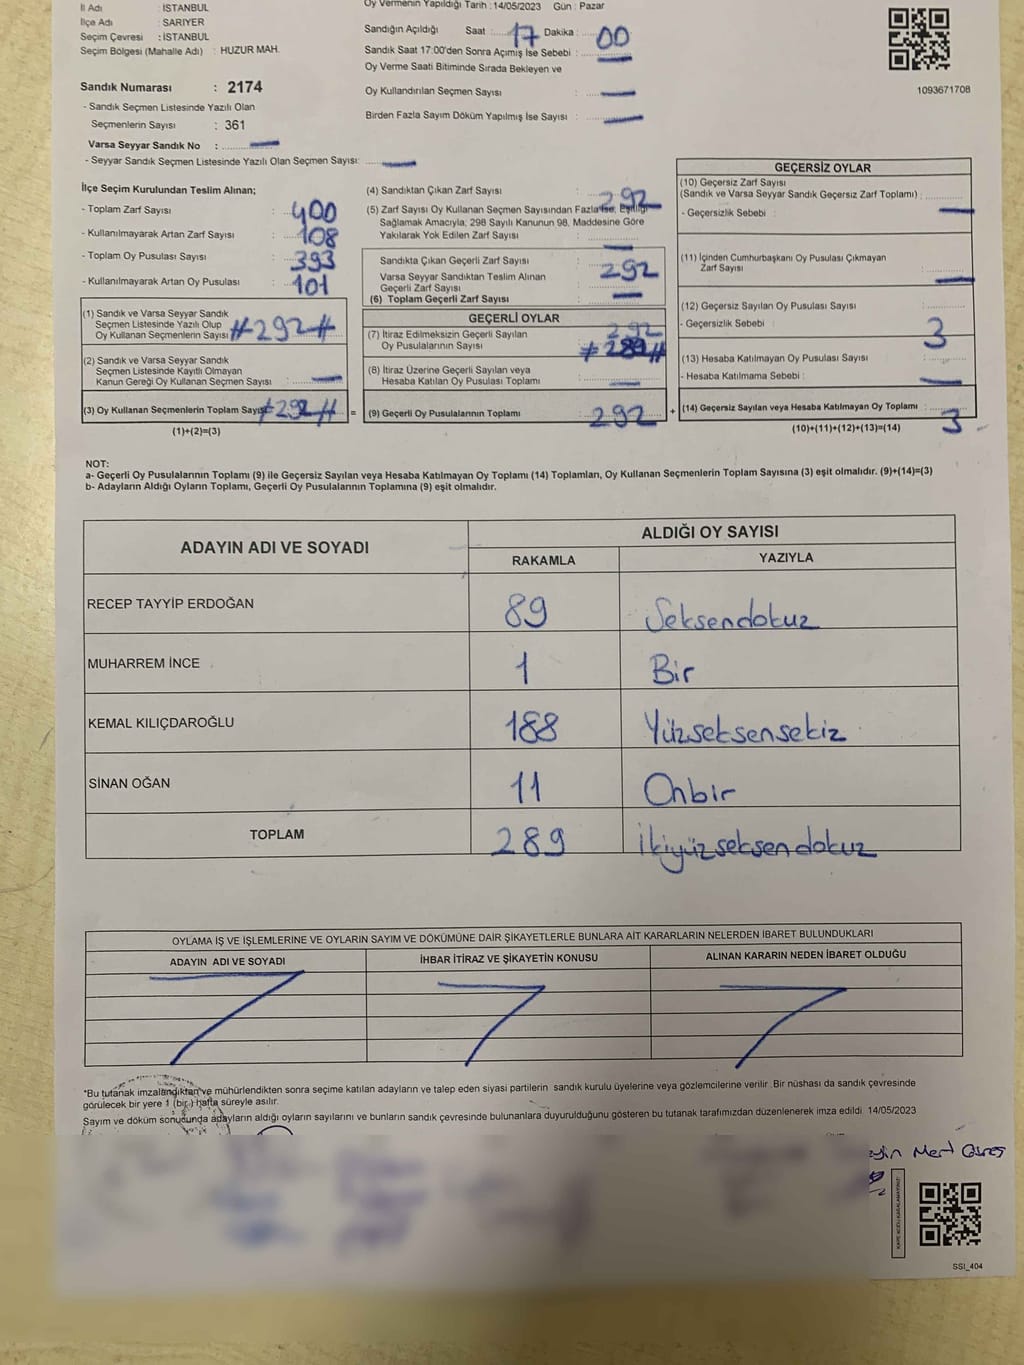 İl Adı : İSTANBUL
İlçe Adı : SARIYER
Seçim Çevresi : İSTANBUL
Seçim Bölgesi (Mahalle Adı) : HUZUR MAH.
Sandık Numarası : 2174
- Sandık Seçmen Listesinde Yazılı Olan
Seçmenlerin Sayısı : 361
Varsa Seyyar Sandık No :
- Seyyar Sandık Seçmen Listesinde Yazılı Olan Seçmen Sayısı:
Oy Vermenin Yapıldığı Tarih : 14/05/2023 Gün : Pazar
Sandığın Açıldığı Saat : 17 Dakika : 00
Sandık Saat 17:00'den Sonra Açımış İse Sebebi :
Oy Verme Saati Bitiminde Sırada Bekleyen ve
Oy Kullandırılan Seçmen Sayısı :
Birden Fazla Sayım Döküm Yapılmış İse Sayısı :
1093671708
İlçe Seçim Kurulundan Teslim Alınan;
- Toplam Zarf Sayısı : 400
- Kullanılmayarak Artan Zarf Sayısı : 108
- Toplam Oy Pusulası Sayısı : 393
- Kullanılmayarak Artan Oy Pusulası : 101
(1) Sandık ve Varsa Seyyar Sandık
Seçmen Listesinde Yazılı Olup
Oy Kullanan Seçmenlerin Sayısı #292#
(2) Sandık ve Varsa Seyyar Sandık
Seçmen Listesinde Kayıtlı Olmayan
Kanun Gereği Oy Kullanan Seçmen Sayısı :
(3) Oy Kullanan Seçmenlerin Toplam Sayısı #292# =
(1)+(2)=(3)
(4) Sandıktan Çıkan Zarf Sayısı : 292
(5) Zarf Sayısı Oy Kullanan Seçmen Sayısından Fazla İse, Eşitliği
Sağlamak Amacıyla; 298 Sayılı Kanunun 98. Maddesine Göre
Yakılarak Yok Edilen Zarf Sayısı :
Sandıkta Çıkan Geçerli Zarf Sayısı : 292
Varsa Seyyar Sandıktan Teslim Alınan
Geçerli Zarf Sayısı :
(6) Toplam Geçerli Zarf Sayısı
GEÇERLİ OYLAR
(7) İtiraz Edilmeksizin Geçerli Sayılan 292
Oy Pusulalarının Sayısı #289#
(8) İtiraz Üzerine Geçerli Sayılan veya
Hesaba Katılan Oy Pusulası Toplamı
(9) Geçerli Oy Pusulalarının Toplamı 292 +
GEÇERSİZ OYLAR
(10) Geçersiz Zarf Sayısı
(Sandık ve Varsa Seyyar Sandık Geçersiz Zarf Toplamı) :
- Geçersizlik Sebebi :
(11) İçinden Cumhurbaşkanı Oy Pusulası Çıkmayan
Zarf Sayısı
(12) Geçersiz Sayılan Oy Pusulası Sayısı
- Geçersizlik Sebebi : 3
(13) Hesaba Katılmayan Oy Pusulası Sayısı
- Hesaba Katılmama Sebebi :
(14) Geçersiz Sayılan veya Hesaba Katılmayan Oy Toplamı : 3
(10)+(11)+(12)+(13)=(14)
NOT:
a- Geçerli Oy Pusulalarının Toplamı (9) ile Geçersiz Sayılan veya Hesaba Katılmayan Oy Toplamı (14) Toplamları, Oy Kullanan Seçmenlerin Toplam Sayısına (3) eşit olmalıdır. (9)+(14)=(3)
b- Adayların Aldığı Oyların Toplamı, Geçerli Oy Pusulalarının Toplamına (9) eşit olmalıdır.
ADAYIN ADI VE SOYADI
ALDIĞI OY SAYISI
RAKAMLA YAZIYLA
RECEP TAYYİP ERDOĞAN 89 Seksendokuz
MUHARREM İNCE 1 Bir
KEMAL KILIÇDAROĞLU 188 Yüzseksensekiz
SİNAN OĞAN 11 Onbir
TOPLAM 289 İkiyüzseksendokuz
OYLAMA İŞ VE İŞLEMLERİNE VE OYLARIN SAYIM VE DÖKÜMÜNE DAİR ŞİKAYETLERLE BUNLARA AİT KARARLARIN NELERDEN İBARET BULUNDUKLARI
ADAYIN ADI VE SOYADI İHBAR İTİRAZ VE ŞİKAYETİN KONUSU ALINAN KARARIN NEDEN İBARET OLDUĞU
*Bu tutanak imzalandıktan ve mühürlendikten sonra seçime katılan adayların ve talep eden siyasi partilerin sandık kurulu üyelerine veya gözlemcilerine verilir. Bir nüshası da sandık çevresinde
görülecek bir yere 1 (bir ) hafta süreyle asılır.
Sayım ve döküm sonucunda adayların aldığı oyların sayılarını ve bunların sandık çevresinde bulunanlara duyurulduğunu gösteren bu tutanak tarafımızdan düzenlenerek imza edildi. 14/05/2023
Mert
SSI_404